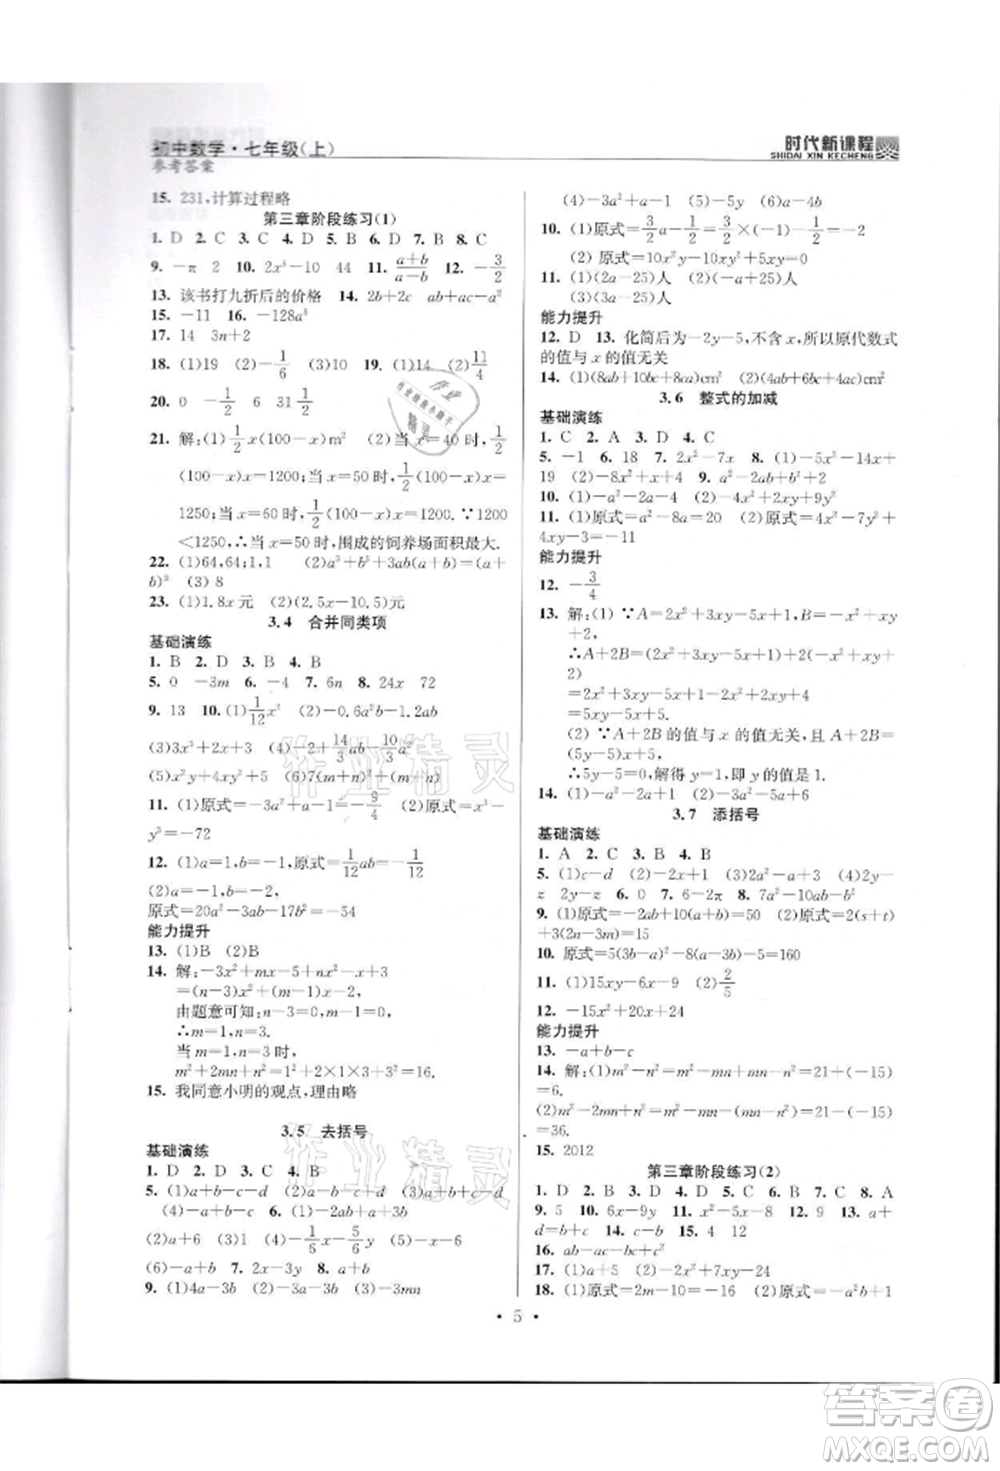 初中数学·七年级(上)
参考答案
时代新课程
SHIDAI XIN KECHENG
15. 231,计算过程略
第三章阶段练习(1)
1. D 2. C 3. C 4. D 5. B 6. D 7. B 8. C
9. -π 2 10. 2x³-10 44 11. (a+b)/(a-b) 12. -3/2
13. 该书打九折后的价格 14. 2b+2c ab+ac-a²
15. -11 16. -128a⁸
17. 14 3n+2
18. (1)19 (2)-1/6 19. (1)4 (2)11/4
20. 0 -1/2 6 31 1/2
21. 解:(1)1/2x(100-x)m² (2)当 x=40 时,
1/2x(100-x)=1200;当 x=50 时,1/2x(100-x)=1250;
当 x=60 时,1/2x(100-x)=1200. ∵1200
<1250,∴当 x=50 时,围成的饲养场面积最大.
22. (1)64,64;1,1 (2)a³+b³+3ab(a+b)=(a+
b)³ (3) 8
23. (1)1.8x元 (2)(2.5x-10.5)元
3.4 合并同类项
基础演练
1. B 2. D 3. D 4. B
5. 0 -3m 6. -4 7. 6n 8. 24x 72
9. 13 10. (1)1/12x² (2)-0.6a²b-1.2ab
(3)3x³+x² (4)-2+14/3ab-2/3a²
(5)x²+4xy+y² (6)7(m+n)²-(m+n)
11. (1)原式=-3a²+1=-9/4 (2)原式=x³-
y³=-72
12. (1)a=1,b=-1,原式=1/12ab=-1/12
(2)a=-1,b=-2,
原式=20a²-ab-17b²=-54
能力提升
13. (1)B (2)B
14. 解:-3x²+mx+nx²-x+3
=(n-3)x²+(m-1)x+3,
由题意可知:n-3=0,m-1=0,
∴m=1,n=3.
当 m=1,n=3时,
m²+2mn+n²=1+2×1×3+3²=16.
15. 我同意小明的观点,理由略
3.5 去括号
基础演练
1. D 2. D 3. C 4. B
5. (1)a+b-c-d (2)a-b-c+d (3)-a-b+c-d
(4)-a+b+c-d 6. (1)-2ab+ab² (2)-3x
(3)a+6 (4)-9y+1 (5)-1/6x-5/6x²
(6)-a+b 7. 2x-3y 8. 10x-3x²
9. (1)4a-3b (2)a-3b (3)4x-3
(4)-a²+a-1 (5)-2x-5y (6)a-4b
10. (1)原式=3/2x²-1/2=3/2a-1/2=-2
(2) 原式=10x²y-10xy²+xy=0
11. (1)(2a+25)人 (2)(-a+25)人
(3)(3a)人
能力提升
12. D 13. 化简后为-2y-5,不含 x,所以原代数式
的值与 x 的值无关
14. (1)(8ab+10bc+8ac)cm² (2)(4ab+6bc+4ac)cm²
3.6 整式的加减
基础演练
1. C 2. A 3. D 4. A
5. -1 6. 18 7. 2x²-7x 8. (1)-5x³-14x+
19 (2)-8x²+x-4 9. a²-2ab+b²+a-b
10. (1)-a²-2a-4 (2)-7x²+4xy+9y²
11. (1)原式=a²-8a=20 (2)原式=4x²-7x²-
4xy-3=-11
能力提升
12. -3/4
13. 解:(1) ∵A=2x²+3xy-2x,B=-x²+xy
+2,
∴A+2B=(2x²+3xy-2x)+2(-x²+xy+
2)
=2x²+3xy-2x-2x²+2xy+4
=5xy-2x+4
(2) ∵A+2B的值与 x 的值无关,且 A+2B=
(5y-2)x+5,
∴5y-5=0,解得 y=1,即 y 的值是1.
14. (1)-2a+8 (2)-5a+6
3.7 添括号
基础演练
1. A 2. C 3. B 4. B
5. (1)c+d (2)4xy (3)2a²-a+3 (4)2y-
z 2y-z 6. 0 7. 6-2π 8. 7a²-10ab-b²
9. (1)原式=-2ab+10(a+b)=50 (2)原式=2(s+t)
+3(2n-3m)=15
10. 原式=5(3b-a)²-8(a-3b)-5=21
11. (1)15xy-6x-9 (2)2/5
12. -15x²+20x+24
能力提升
13. -a+b-c
14. 解:(1)m²-n²=m²-mn+mn-n²=21-15
=6.
(2)m²-2mn+n²=m²-mn-(mn-n²)=21+15
=36.
15. 2012
第三章阶段练习(2)
1. D 2. A 3. D 4. C 5. C 6. B 7. B 8. C
9. 5 10. 6x-9y 11. x²-5x-8 12. 9 13. a+
d=b+c 14. c-b 15. 4 12
16. ab-ac-bc+c²
17. (1)a+5 (2)-15xy²-24
18. (1) 原式=2m=-5 (2)原式=-a²b+1
· 5 ·
作业精灵
答案圈
MXQE.COM